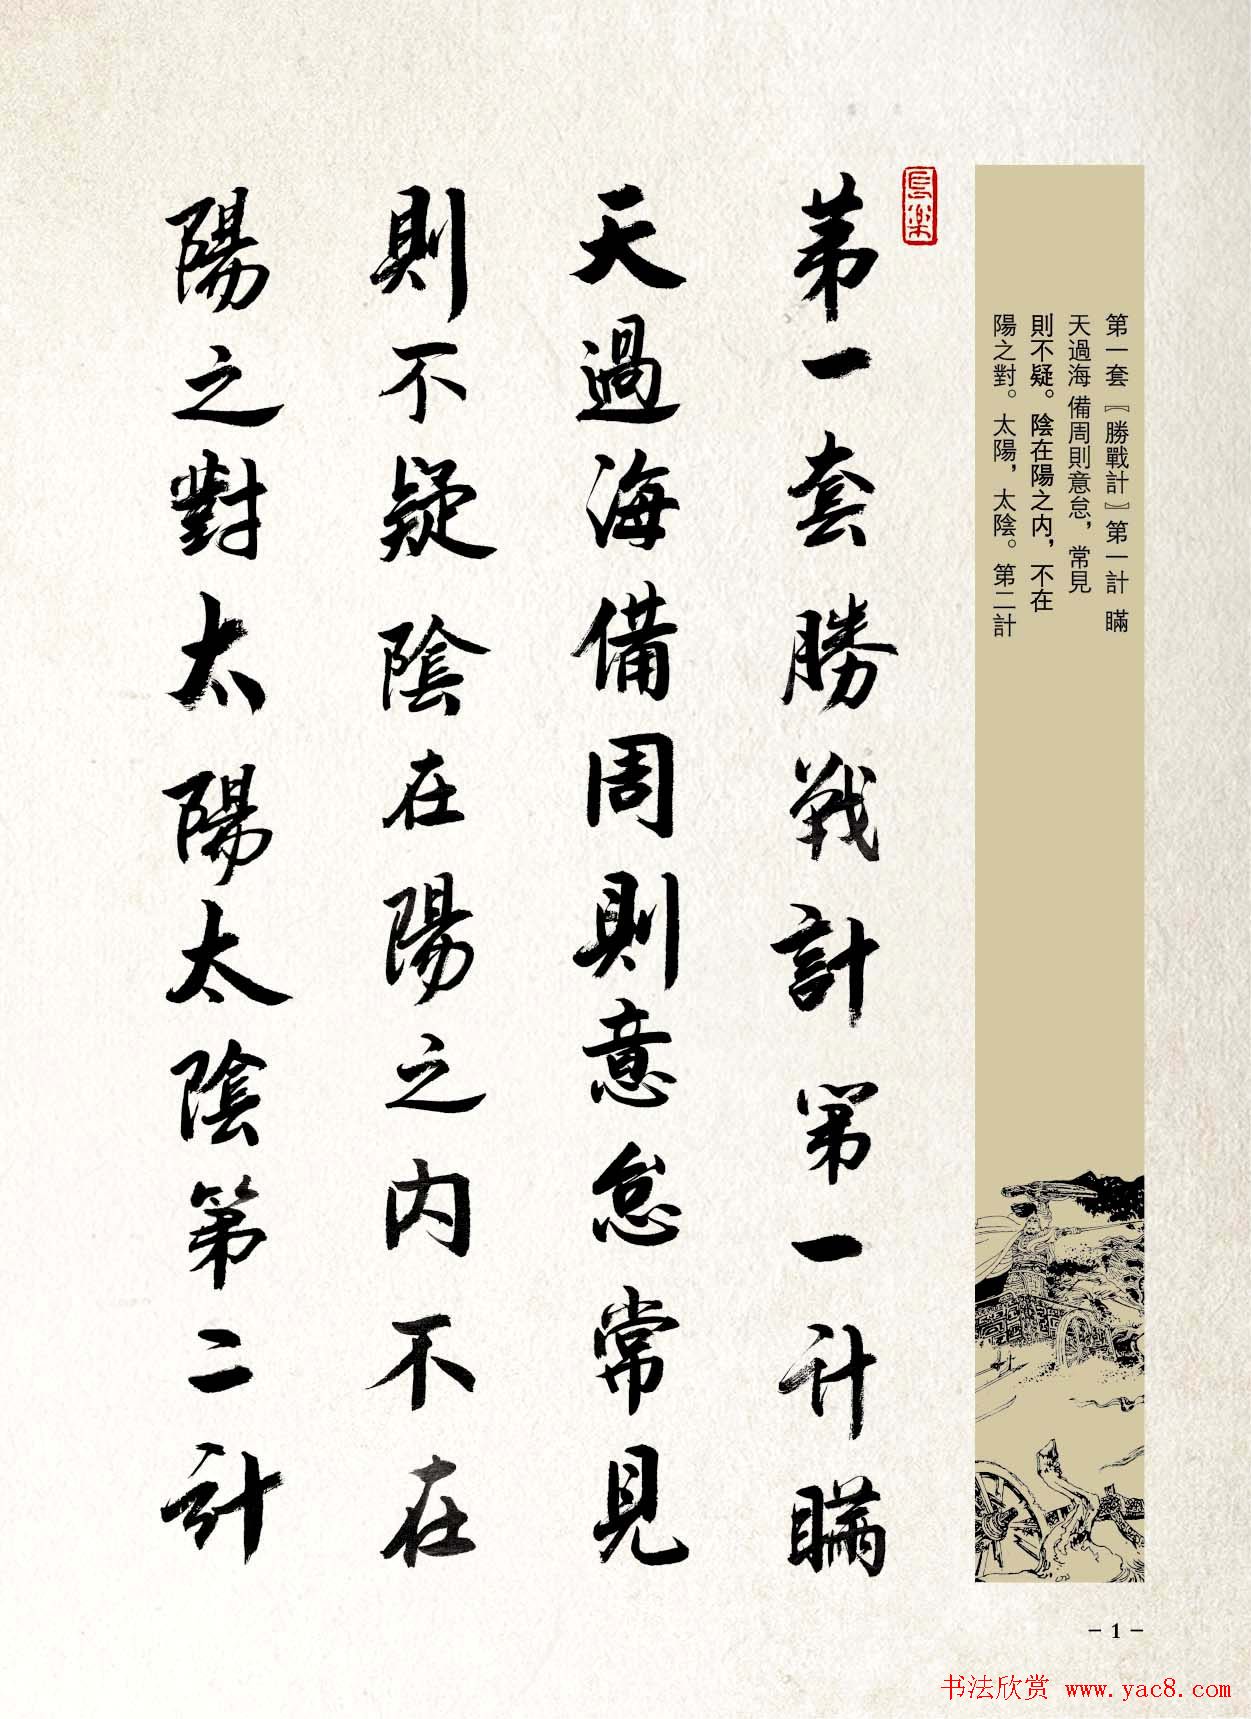 第一套『勝戰計』第一計 瞞
天過海 備周則意怠，常見
則不疑。陰在陽之内，不在
陽之對。太陽，太陰。第二計
長樂
第一套勝戰計第一計瞞
天過海備周則意怠常見
則不疑陰在陽之内不在
陽之對太陽太陰第二計
- 1 -
书法欣赏 www.yac8.com